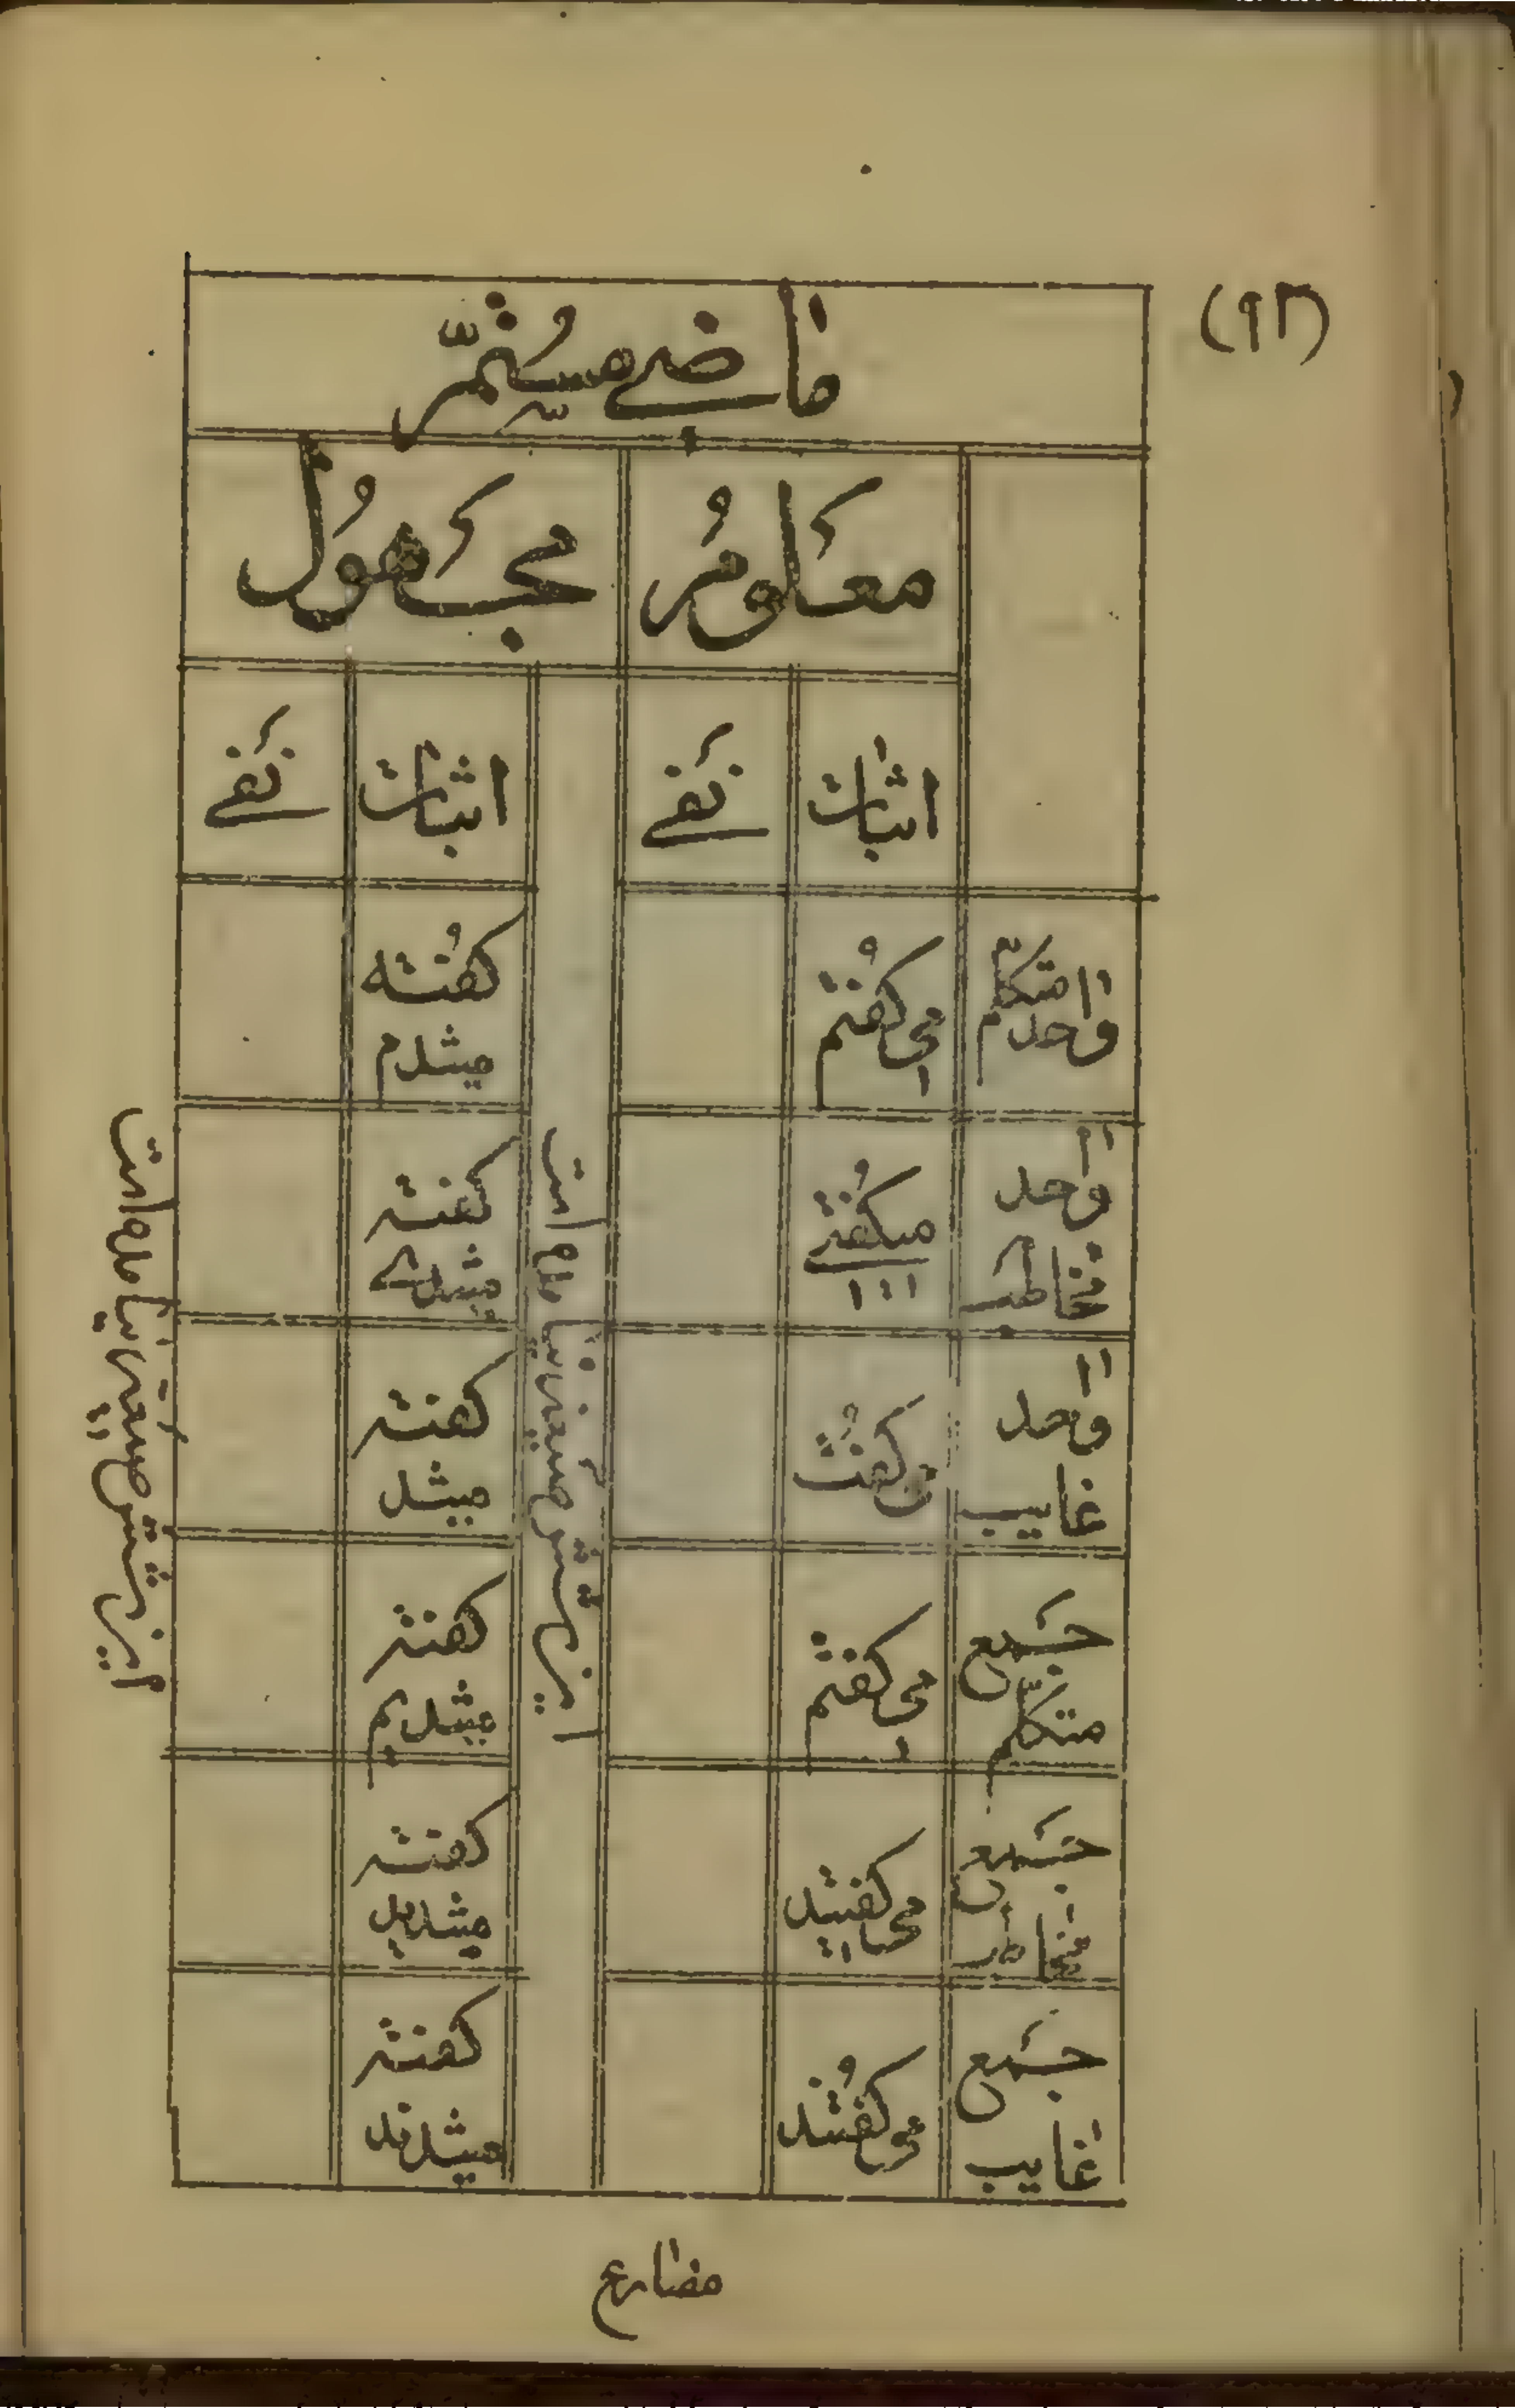 (۹۲)
ماضی مستمرّ
معلوم مجهول
اثبات نفی اثبات نفی
واحد متکلّم می گفتم گفته میشدم
واحد مخاطب میگفتی گفته میشدی
واحد غایب می گفت گفته میشد
جمع متکلّم می گفتیم گفته میشدیم
جمع مخاطب می گفتید گفته میشدید
جمع غایب می گفتند گفته میشدند
این شش صیغه
این شش صیغه
مضارع